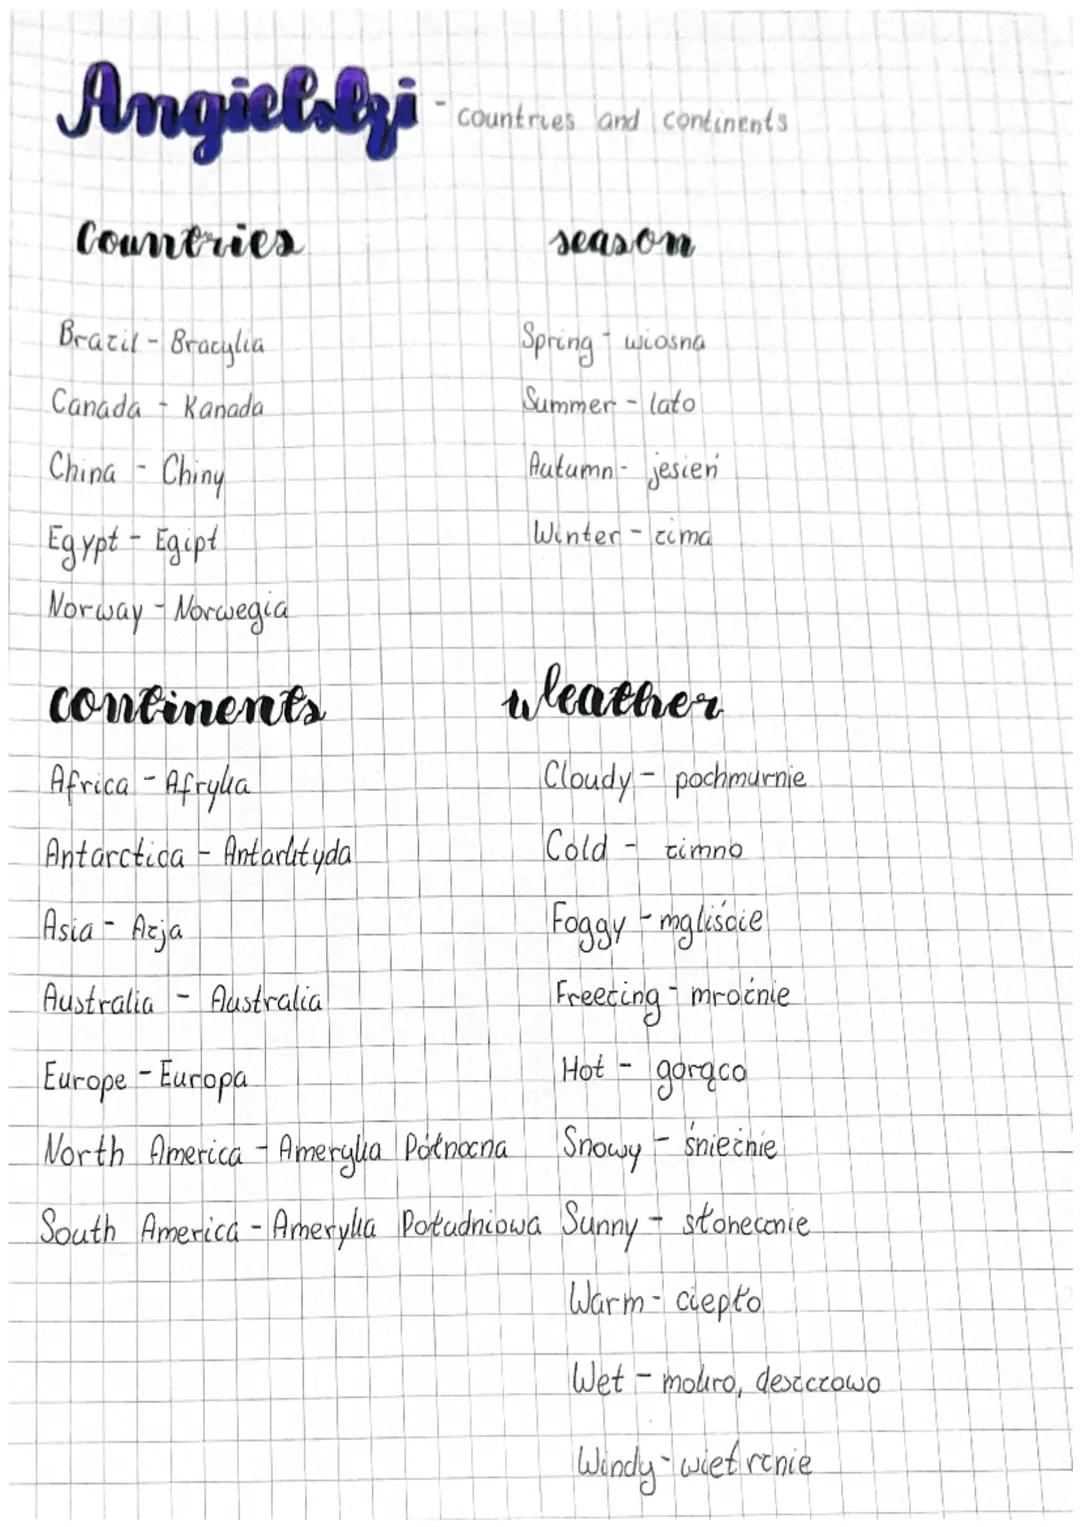 Angielski - countries and continents
Countries
Brazil - Brazylia
Canada - Kanada
China - Chiny
Egypt - Egipt
Norway - Norwegia
season
Spring - wiosna
Summer - lato
Autumn - jesień
Winter - zima
continents
Africa - Afryka
Antarctica - Antarktyda
Asia - Azja
Australia - Australia
Europe - Europa
North America - Ameryka Północna
South America - Ameryka Południowa
Weather
Cloudy - pochmurnie
Cold - zimno
Foggy - mgliście
Freezing - mroźnie
Hot - gorąco
Snowy - śnieżnie
Sunny - słonecznie
Warm - ciepło
Wet - mokro, deszczowo
Windy - wietrznie